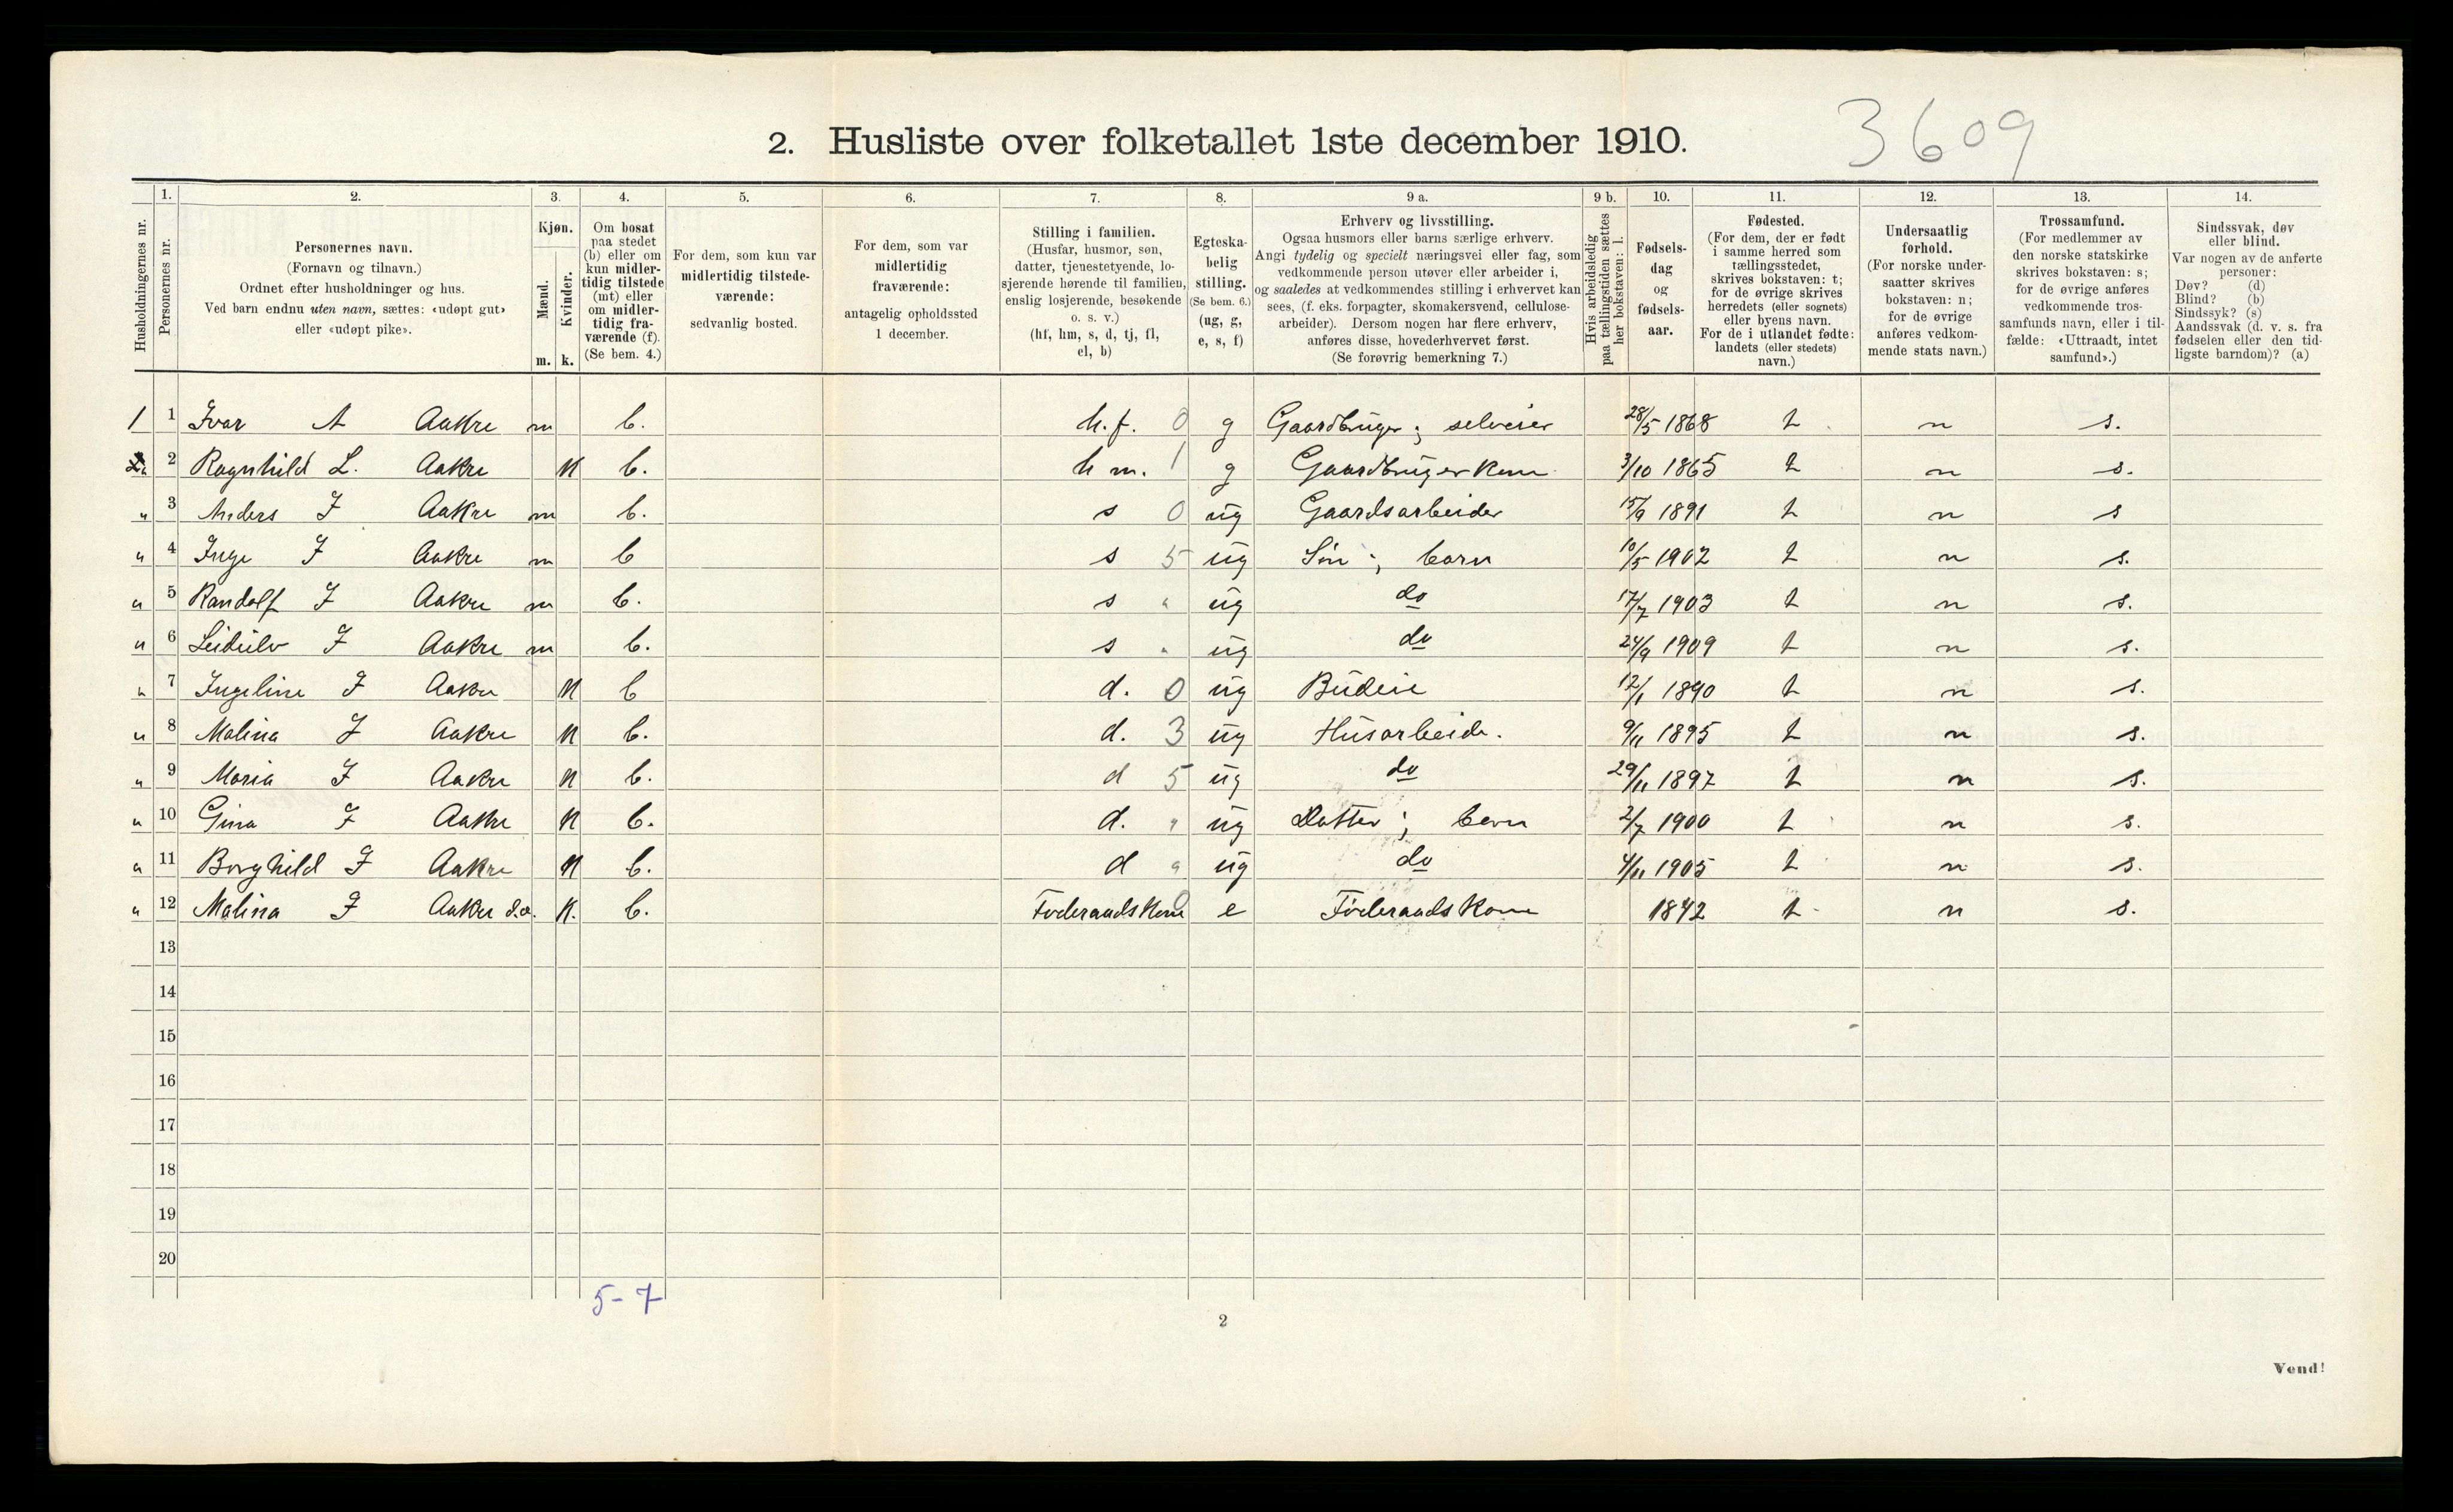 2. Husliste over folketallet 1ste december 1910.
3609
Husholdningernes nr.
1.
Personernes nr.
2.
Personernes navn.
(Fornavn og tilnavn.)
Ordnet efter husholdninger og hus.
Ved barn endnu uten navn, sættes: «udøpt gut»
eller «udøpt pike».
3.
Kjøn.
Mænd.
Kvinder.
m. k.
4.
Om bosat
paa stedet
(b) eller om
kun midler-
tidig tilstede
(mt) eller
om midler-
tidig fra-
værende (f).
(Se bem. 4.)
5.
For dem, som kun var
midlertidig tilstede-
værende:
sedvanlig bosted.
6.
For dem, som var
midlertidig
fraværende:
antagelig opholdssted
1 december.
7.
Stilling i familien.
(Husfar, husmor, søn,
datter, tjenestetyende, lo-
sjerende hørende til familien,
enslig losjerende, besøkende
o. s. v.)
(hf, hm, s, d, tj, fl,
el, b)
8.
Egteska-
belig
stilling.
(Se bem. 6.)
(ug, g,
e, s, f)
9 a.
Erhverv og livsstilling.
Ogsaa husmors eller barns særlige erhverv.
Angi tydelig og specielt næringsvei eller fag, som
vedkommende person utøver eller arbeider i,
og saaledes at vedkommendes stilling i erhvervet kan
sees, (f. eks. forpagter, skomakersvend, cellulose-
arbeider). Dersom nogen har flere erhverv,
anføres disse, hovederhvervet først.
(Se forøvrig bemerkning 7.)
9 b.
Hvis arbeidsledig
paa tællingstiden sættes
her bokstaven: l.
10.
Fødsels-
dag
og
fødsels-
aar.
11.
Fødested.
(For dem, der er født
i samme herred som
tællingsstedet,
skrives bokstaven: t;
for de øvrige skrives
herredets (eller sognets)
eller byens navn.
For de i utlandet fødte:
landets (eller stedets)
navn.)
12.
Undersaatlig
forhold.
(For norske under-
saatter skrives
bokstaven: n;
for de øvrige
anføres vedkom-
mende stats navn.)
13.
Trossamfund.
(For medlemmer av
den norske statskirke
skrives bokstaven: s;
for de øvrige anføres
vedkommende tros-
samfunds navn, eller i til-
fælde: «Uttraadt, intet
samfund».)
14.
Sindssvak, døv
eller blind.
Var nogen av de anførte
personer:
Døv? (d)
Blind? (b)
Sindssyk? (s)
Aandssvak (d. v. s. fra
fødselen eller den tid-
ligste barndom)? (a)
1 1 Ivar A Aakre m b. h.f. 0 g Gaardbruger; selveier 28/5 1868 t n s.
2 Ragnhild L. Aakre k b. h m. 1 g Gaardbrugerkone 3/10 1865 t n s.
" 3 Anders I Aakre m b. s 0 ug Gaardsarbeider 15/9 1891 t n s
" 4 Inge I Aakre m b s 5 ug Søn; barn 10/5 1902 t n s.
" 5 Randolf I Aakre m b. s " ug do 17/7 1903 t n s.
" 6 Leidulv I Aakre m b. s " ug do 24/9 1909 t n s.
" 7 Ingeline I Aakre k b d. 0 ug Budeie 12/1 1890 t n s.
" 8 Malina I Aakre k b. d. 3 ug Husarbeide. 9/11 1895 t n s.
" 9 Maria I Aakre k b. d 5 ug do 29/11 1897 t n s.
" 10 Gina I Aakre k b. d. " ug Datter; barn 2/7 1900 t n s.
" 11 Borghild I Aakre k b. d " ug do 4/11 1905 t n s.
" 12 Malina I Aakre d.æ. k. b. Føderaadskone 0 e Føderaadskone 1842 t n s.
13
14
15
16
17
18
19
20
5-7
2
Vend!